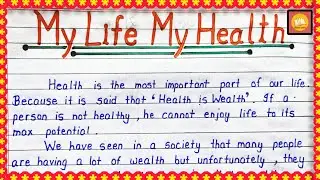 My Life My Health
Health is the most important part of our life.
Because it is said that 'Health is Wealth'. If a
person is not healthy, he cannot enjoy life to its
max potential.
We have seen in a society that many people
are having a lot of wealth but unfortunately, they